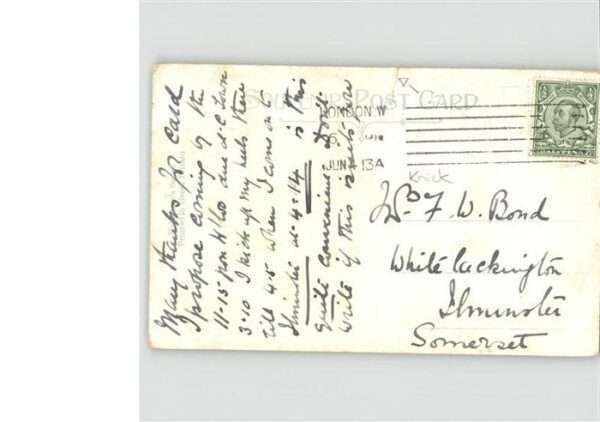 SOUVENIR POST CARD
LONDON. W
JUN 13A
Knick
F. W. Bond
Whitelackington
Ilminster
Somerset
Many thanks for card
I propose coming by the
11-15 from W'loo due at C
3-10 I kick up my heels there
till 4.5 when I come on to
Ilminster at 4-14 is this
quite convenient Don't
write if this suits you